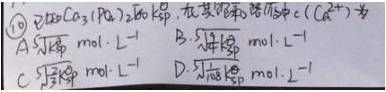 ⑩ 已知Ca₃(PO₄)₂的K^θsp, 在其饱和溶液中c(Ca²⁺)为
A ⁵√(K^θsp) mol·L⁻¹ B. ⁵√(9/4 K^θsp) mol·L⁻¹
C ⁵√(2/3 K^θsp) mol·L⁻¹ D. ⁵√(1/108 K^θsp) mol·L⁻¹